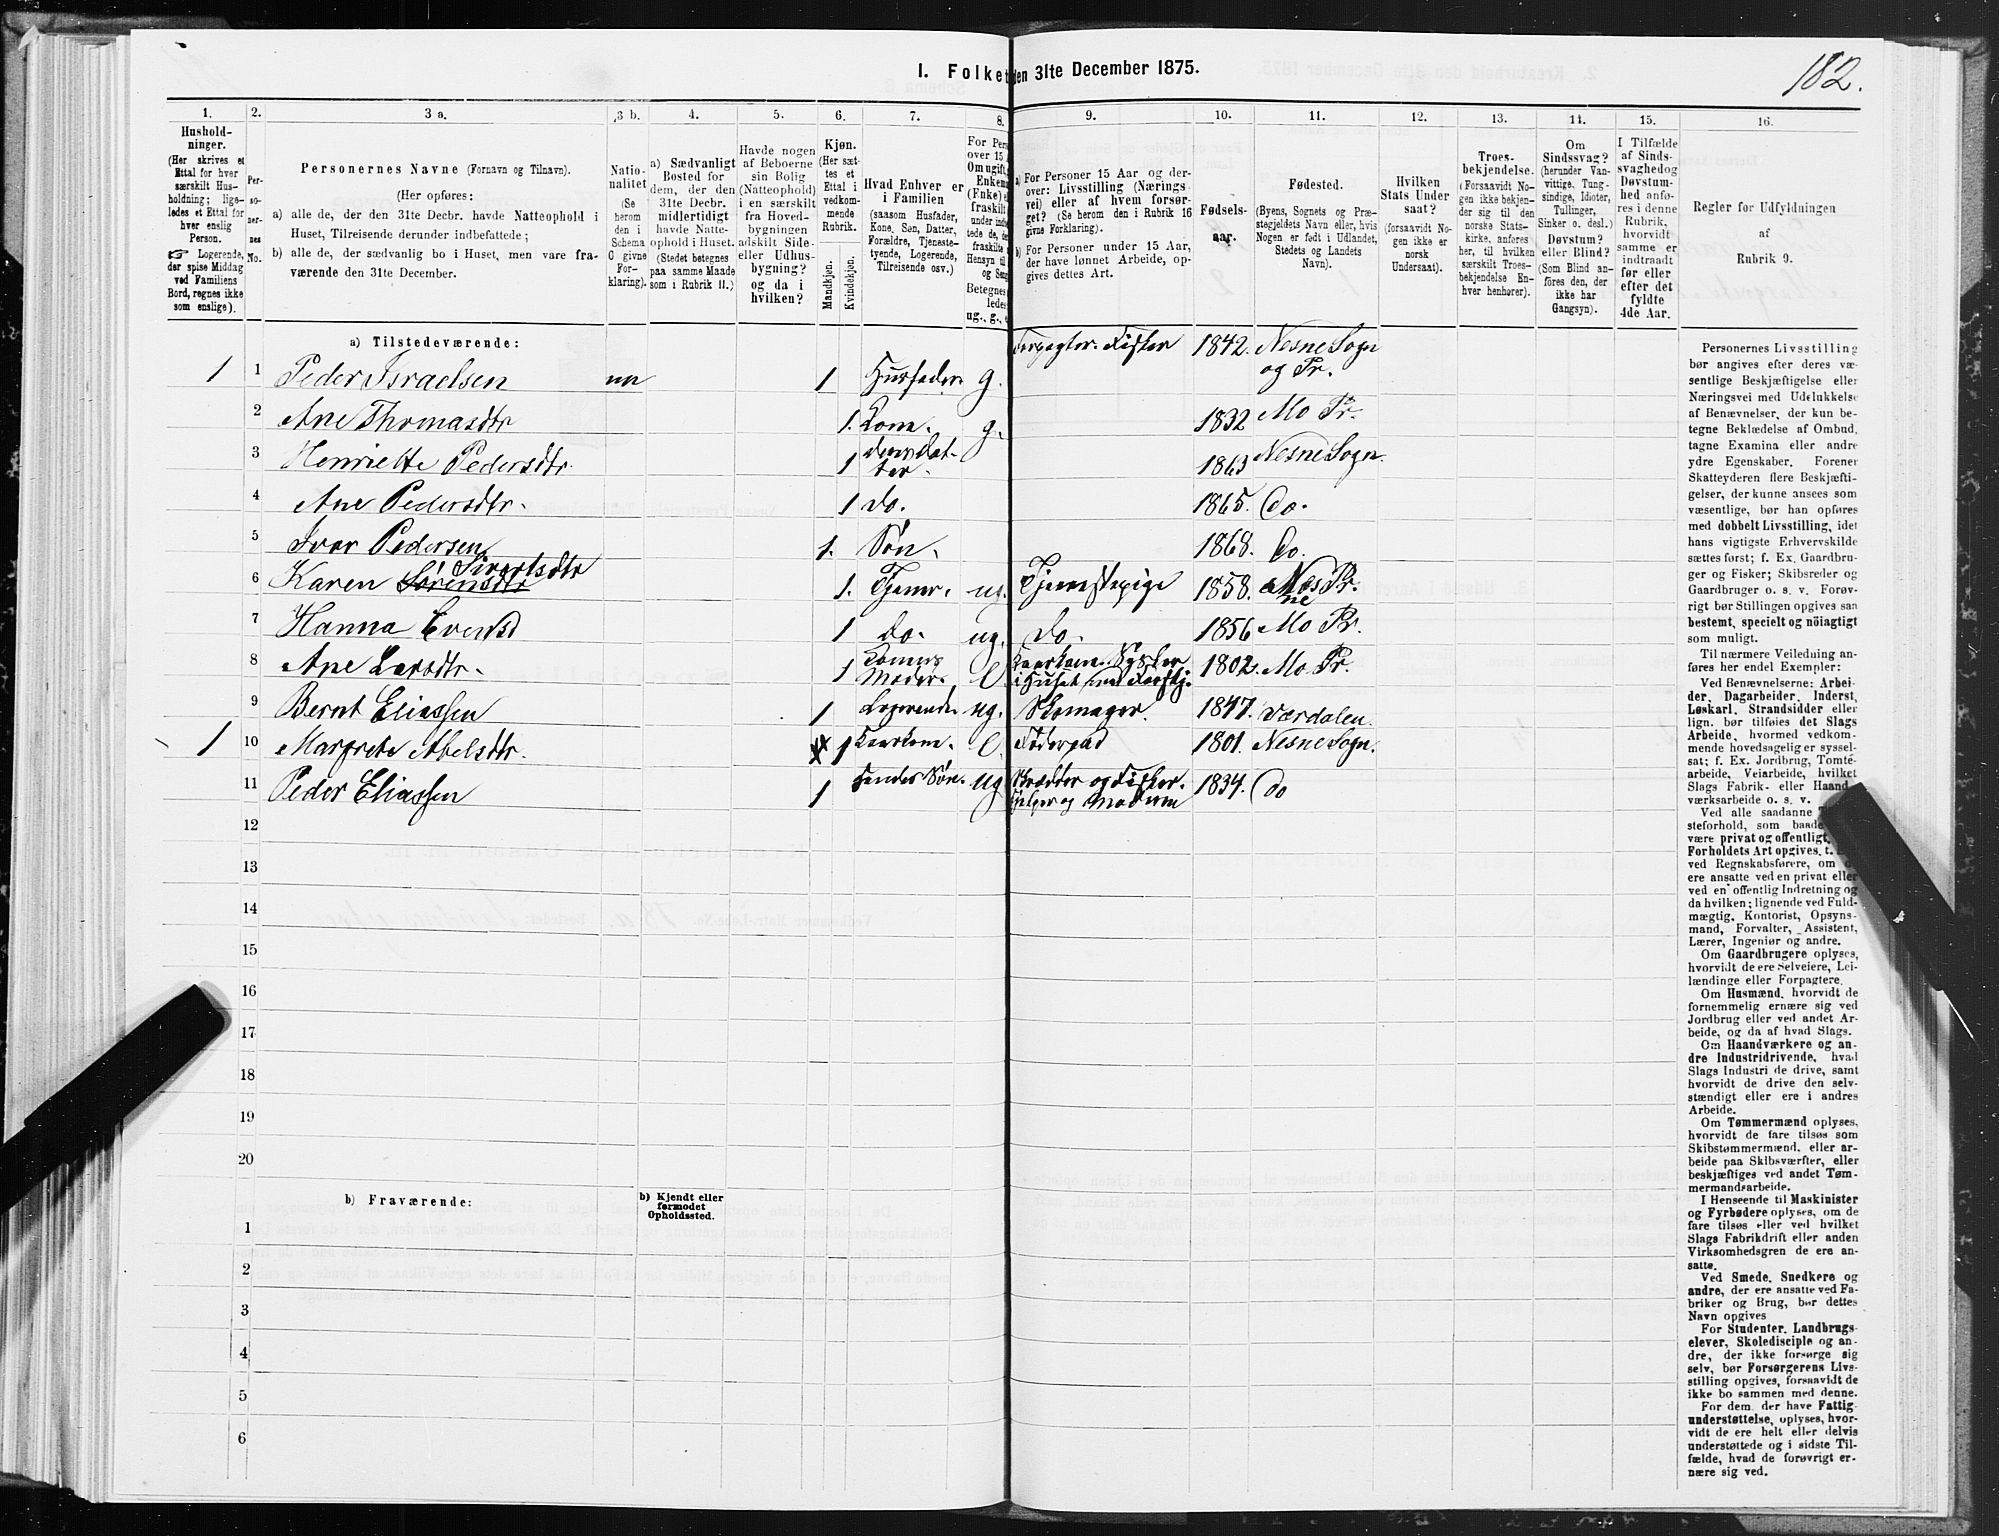 182.
I. Folket den 31te December 1875.
1. 2. 3 a. 3 b. 4. 5. 6. 7. 8. 9. 10. 11. 12. 13. 14. 15. 16.
Hushold-
ninger.
(Her skrives et
Ettal for hver
særskilt Hus-
holdning; lige-
ledes et Ettal for
hver enslig
Person.
☞ Logerende,
der spise Middag
ved Familiens
Bord, regnes ikke
som enslige).
Per-
so-
ner-
nes
No.
Personernes Navne (Fornavn og Tilnavn).
(Her opføres:
a) alle de, der den 31te Decbr. havde Natteophold i
Huset, Tilreisende derunder indbefattede;
b) alle de, der sædvanlig bo i Huset, men vare fra-
værende den 31te December.
Natio-
nalitet
(Se
herom
den i
Schema
O givne
For-
klaring).
a) Sædvanligt
Bosted for
dem, der den
31te Decbr.
midlertidigt
havde Natte-
ophold i Huset.
(Stedet betegnes
paa samme Maade
som i Rubrik 11.)
Havde nogen
af Beboerne
sin Bolig
(Natteophold)
i en særskilt
fra Hoved-
bygningen
adskilt Side-
eller Udhus-
bygning?
og da i
hvilken?
Kjøn.
(Her sæt-
tes et
Ettal i
vedkom-
mende
Rubrik.
Mandkjøn.
Kvindekjøn.
Hvad Enhver er
i Familien
(saasom Husfader,
Kone, Søn, Datter,
Forældre, Tjeneste-
tyende, Logerende,
Tilreisende osv.)
For Pers
over 15 A
Om ugift,
Enkema
(Enke) e
fraskilt
under indbe
tede de, de
fraskilte
Hensyn til
og Seng
Betegnes
ledes
ug., g., e
a) For Personer 15 Aar og der-
over: Livsstilling (Nærings-
vei) eller af hvem forsør-
get? (Se herom den i Rubrik 16
givne Forklaring).
b) For Personer under 15 Aar,
der have lønnet Arbeide, op-
gives dettes Art.
Fødsels-
aar.
Fødested.
(Byens, Sognets og Præ-
stegjeldets Navn eller, hvis
Nogen er født i Udlandet,
Stedets og Landets
Navn).
Hvilken
Stats Under
saat?
(forsaavidt No-
gen ikke er
norsk
Undersaat).
Troes-
bekjendelse.
(Forsaavidt No-
gen ikke bekjen-
der sig til den
norske Stats-
kirke, anføres
her, til hvilken
særskilt Troes-
bekjendelse En-
hver henhører).
Om
Sindssvag?
(herunder Van-
vittige, Tung-
sindige, Idioter,
Tullinger,
Sinker o. desl.)
Døvstum?
eller Blind?
(Som Blind an-
føres den, der
ikke har
Gangsyn).
I Tilfælde
af Sinds-
svaghed og
Døvstum-
hed anfø-
res i denne
Rubrik,
hvorvidt
samme er
indtraadt
før eller
efter det
fyldte
4de Aar.
Regler for Udfyldningen
af
Rubrik 9.
a) Tilstedeværende:
1 1 Peder Israelsen nn 1 Husfader g. Forpagter. Fisker 1842. Nesne Sogn
og Pr.
2 Ane Thomasdtr 1. Kone. g. 1832 Mo Pr.
3 Henriette Pedersdtr. 1 deres Dat-
ter. 1863 Nesne Sogn.
4 Ane Pedersdtr. 1 do. 1865. Do.
5 Ivar Pedersen 1. Søn. 1868. Do.
Sivertsdtr
6 Karen Sørensdtr 1. Tjener. ug. Tjenestepige 1858. Nes Pr.
ne
7 Hanna Evensd 1 do. ug. do. 1856 Mo Pr.
8 Ane Larsdtr. 1 Konens
Moder. e. 1802. Mo Pr.
9 Bernt Eliassen 1 Logerende ug. Skomager. 1847. Værdalen.
1 10 Margrete Abelsdtr. 1 Kaarkone. e. Føderaad 1801. Nesne Sogn.
11 Peder Eliassen 1 Hendes Søn. ug Skrædder og Fisker.
hjelper og Moderen 1834. Do
12
13
14
15
16
17
18
19
20
b) Fraværende:
b) Kjendt eller
formodet
Opholdssted.
1
2
3
4
5
6
Personernes Livsstilling
bør angives efter deres væ-
sentlige Beskjæftigelse eller
Næringsvei med Udelukkelse
af Benævnelser, der kun be-
tegne Beklædelse af Ombud,
tagne Examina eller andre
ydre Egenskaber. Forener
Skatteyderen flere Beskjæfti-
gelser, der kunne ansees som
væsentlige, bør han opføres
med dobbelt Livsstilling, idet
hans vigtigste Erhvervskilde
sættes først; f. Ex. Gaardbru-
ger og Fisker; Skibsreder og
Gaardbruger o. s. v. Forøv-
rigt bør Stillingen opgives saa
bestemt, specielt og nöiagtigt
som muligt.
Til nærmere Veiledning an-
føres her endel Exempler:
Ved Benævnelserne: Arbei-
der, Dagarbeider, Inderst,
Løskarl, Strandsidder eller
lign. bør tilføies det Slags
Arbeide, hvormed vedkom-
mende hovedsagelig er syssel-
sat; f. Ex. Jordbrug, Tomté-
arbeide, Veiarbeide, hvilket
Slags Fabrik- eller Haand-
værksarbeide o. s. v.
Ved alle saadanne
steforhold, som baade
være privat og offentligt,
Forholdets Art opgives, t.
ved Regnskabsførere, om
ere ansatte ved en privat eller
ved en offentlig Indretning og
da hvilken; lignende ved Fuld-
mægtig, Kontorist, Opsyns-
mand, Forvalter, Assistent,
Lærer, Ingeniør og andre.
Om Gaardbrugere oplyses,
hvorvidt de ere Selveiere, Lei-
lændinge eller Forpagtere.
Om Husmænd, hvorvidt de
fornemmelig ernære sig ved
Jordbrug eller ved andet Ar-
beide, og da af hvad Slags.
Om Haandværkere og an-
dre Industridrivende, hvad
Slags Industri de drive, samt
hvorvidt de drive den selv-
stændigt eller ere i andres
Arbeide.
Om Tømmermænd oplyses,
hvorvidt de fare tilsøs som
Skibstømmermænd, eller ar-
beide paa Skibsværfter, eller
beskjæftiges ved andet Tøm-
mermandsarbeide.
I Henseende til Maskinister
og Fyrbødere oplyses, om de
fare tilsøs eller ved hvilket
Slags Fabrikdrift eller anden
Virksomhedsgren de ere an-
satte.
Ved Smede, Snedkere og
andre, der ere ansatte ved Fa-
briker og Brug, bør dettes
Navn opgives
For Studenter, Landbrugs-
elever, Skoledisciple og an-
dre, der ikke forsørge sig
selv, bør Forsørgerens Livs-
stilling opgives, forsaavidt de
ikke bo sammen med denne.
For dem, der have Fattig-
understøttelse, oplyses, hvor-
vidt de ere helt eller delvis
understøttede og i sidste Til-
fælde, hvad de forøvrigt er-
nære sig ved.